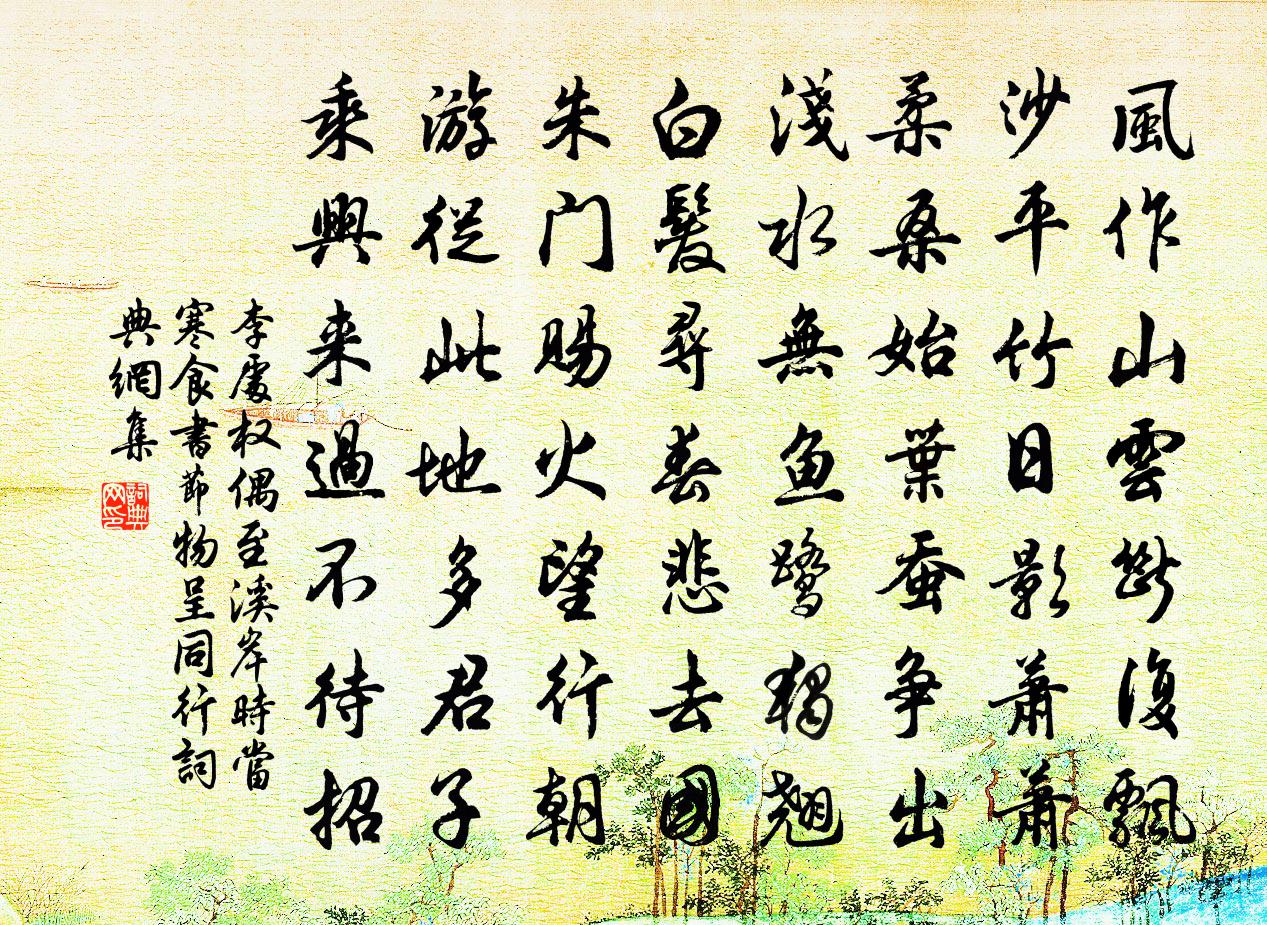 風作山雲斷復飄
沙平竹日影蕭蕭
柔桑始葉蚕爭出
淺水無魚鷺獨翹
白髮尋春悲去國
朱門賜火望行朝
游從此地多君子
乘興来過不待招
李處权偶至溪岸時當
寒食書節物呈同行詞
典網集
詞典
网印